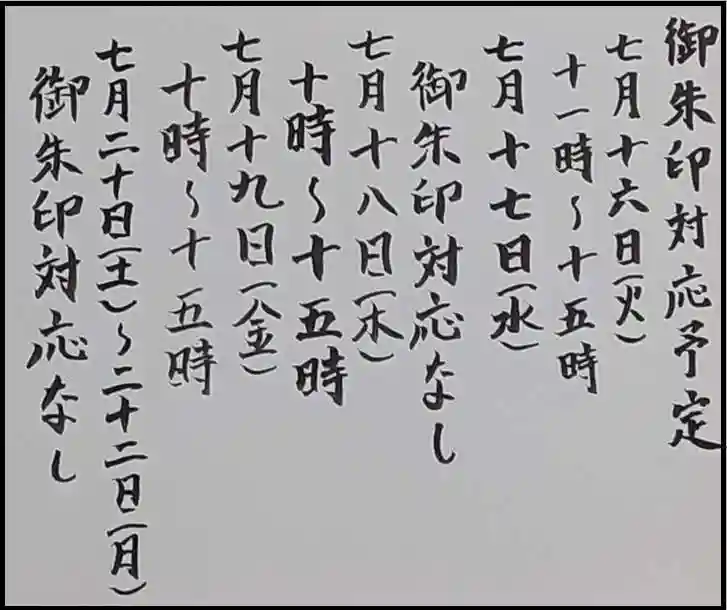 御朱印対応予定
七月十六日(火)
十一時~十五時
七月十七日(水)
御朱印対応なし
七月十八日(木)
十時~十五時
七月十九日(金)
十時~十五時
七月二十日(土)~二十二日(月)
御朱印対応なし